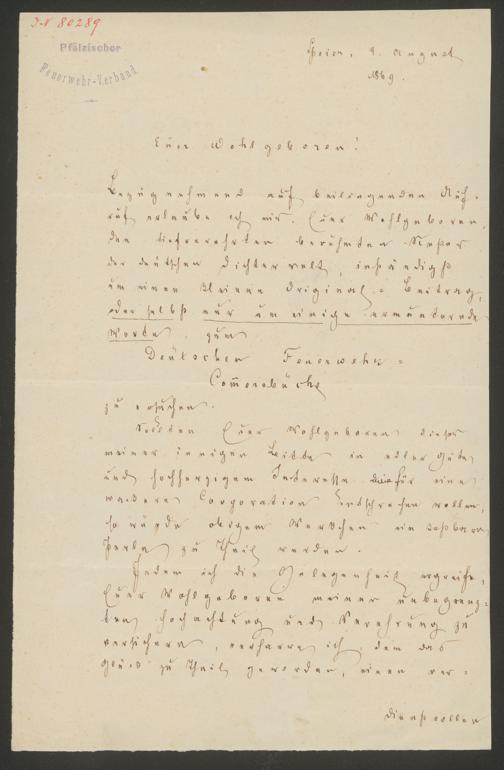 I.N 80289
Pfälzischer
Feuerwehr-Verband
Speier, 9. August
1869.
Euer Wohlgeboren!
Bezugnehmend auf beiliegenden Auf-
ruf erlaube ich mir, Euer Wohlgeboren,
den tiefverehrten berühmten
der deutschen Dichterwelt, inständigst
um einen kleinen Original-Beitrag,
oder selbst nur um einige ermunternde
Worte, zum
Deutschen Feuerwehr-
Com̅ersbuche
zu ersuchen.
Sollten Euer Wohlgeboren dieser
meiner innigen Bitte in edler Güte
und hochherzigem Interesse für eine
wackere Corporation entsprechen wollen,
so würde obigem Werkchen ein kostbare
Perle zu Theil werden.
Indem ich die Gelegenheit ergreife,
Euer Wohlgeboren meiner unbegrenz-
ten Hochachtung und Verehrung zu
versichern, verharre ich, dem das
Glück zu Theil geworden, einen ver-
dienstvollen